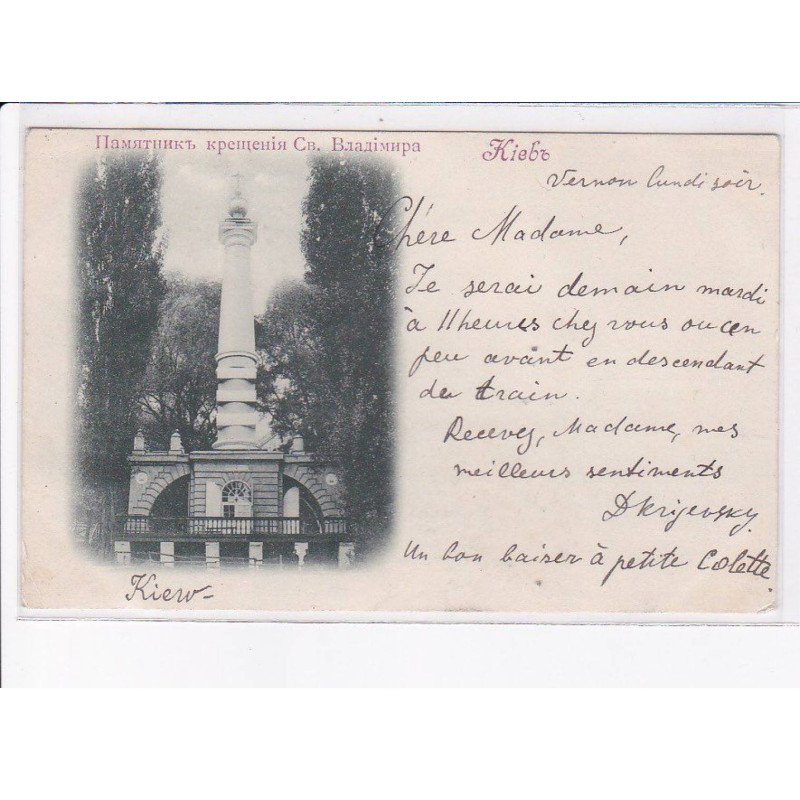 Памятникъ крещенія Св. Владіміра
Кіевъ
Vernon lundi soir.
Chère Madame,
Je serai demain mardi
à 11 heures chez vous ou un
peu avant en descendant
du train.
Recevez, Madame, mes
meilleurs sentiments
Un bon baiser à petite Colette.
Kiew-